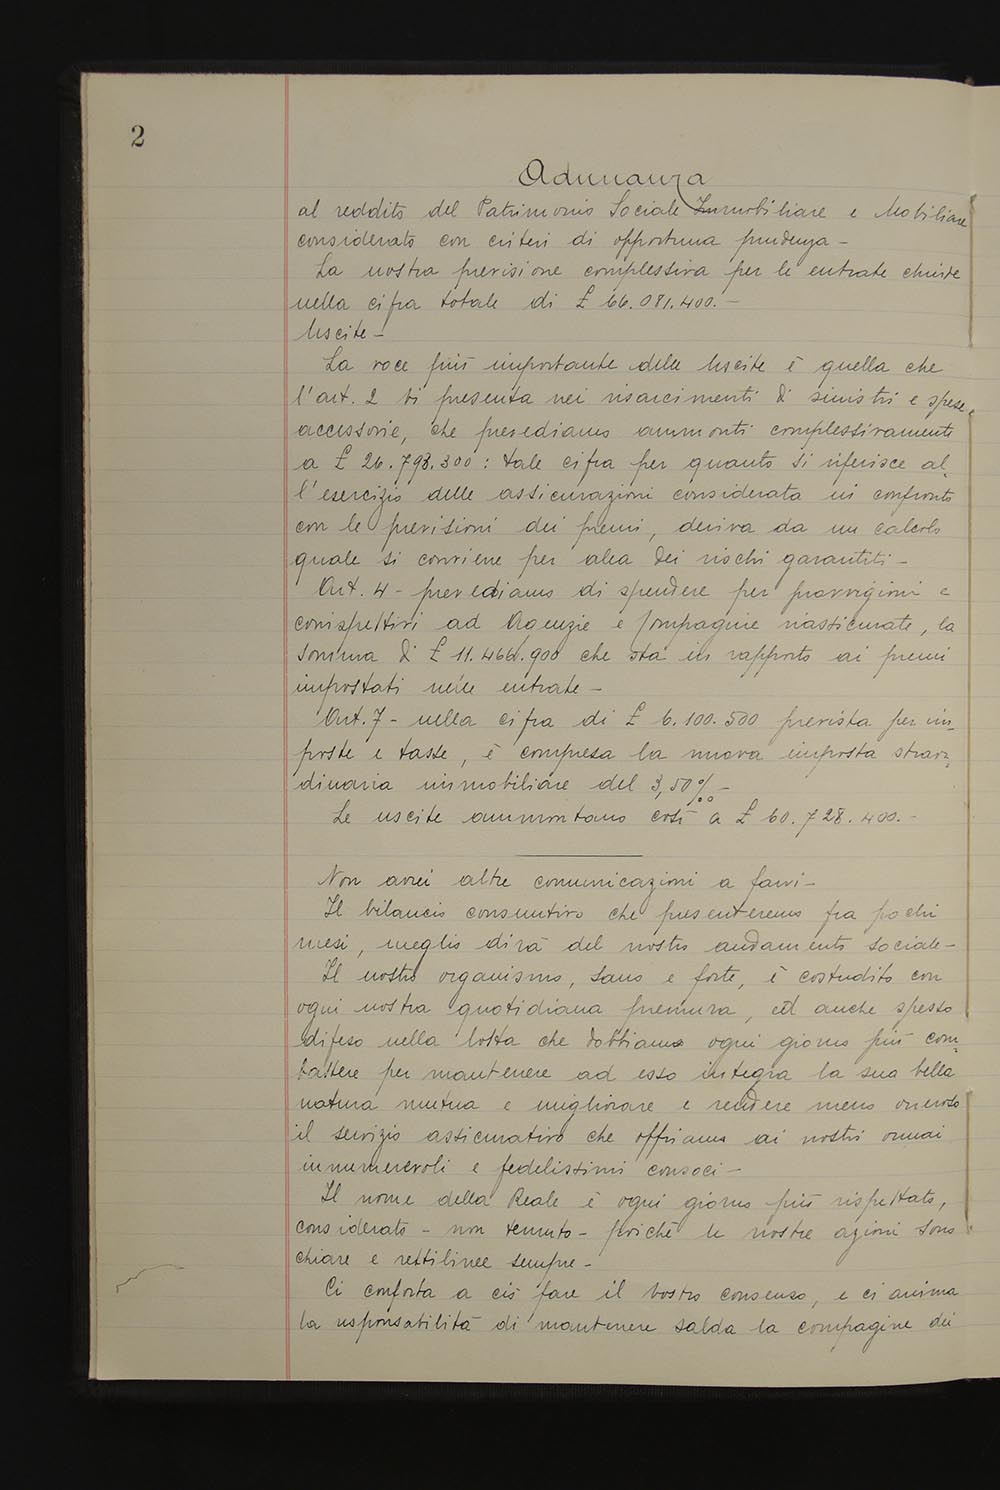 2
Adunanza
al reddito del Patrimonio Sociale Immobiliare e Mobiliare
considerato con criteri di opportuna prudenza -
La nostra previsione complessiva per le entrate chiude
nella cifra totale di £ 66.081.400.-
Uscite -
La voce più importante delle Uscite è quella che
l'art. 2 vi presenta nei risarcimenti di sinistri e spese
accessorie, che prevediamo ammonti complessivamente
a £ 26.798.300: tale cifra per quanto si riferisce al-
l'esercizio delle assicurazioni considerata in confronto
con le previsioni dei premi, deriva da un calcolo
quale si conviene per alea dei rischi garantiti -
Art. 4 - prevediamo di spendere per provvigioni e
corrispettivi ad Agenzie e Compagnie riassicurate, la
somma di £ 11.466.900 che sta in rapporto ai premi
impostati nelle entrate -
Art. 7 - nella cifra di £ 6.100.500 prevista per im-
poste e tasse, è compresa la nuova imposta straor-
dinaria immobiliare del 3,50‰ -
Le uscite ammontano così a £ 60.728.400.-
Non avrei altre comunicazioni a farvi -
Il bilancio consuntivo che presenteremo fra pochi
mesi, meglio dirà del nostro andamento sociale -
Il nostro organismo, sano e forte, è costudito con
ogni nostra quotidiana premura, ed anche spesso
difeso nella lotta che dobbiamo ogni giorno più com-
battere per mantenere ad esso integra la sua bella
natura mutua e migliorare e rendere meno oneroso
il servizio assicurativo che offriamo ai nostri ormai
innumerevoli e fedelissimi consoci -
Il nome della Reale è ogni giorno più rispettato,
considerato - non temuto - poichè le nostre azioni sono
chiare e rettilinee sempre -
Ci conforta a ciò fare il vostro consenso, e ci anima
la responsabilità di mantenere salda la compagine dei